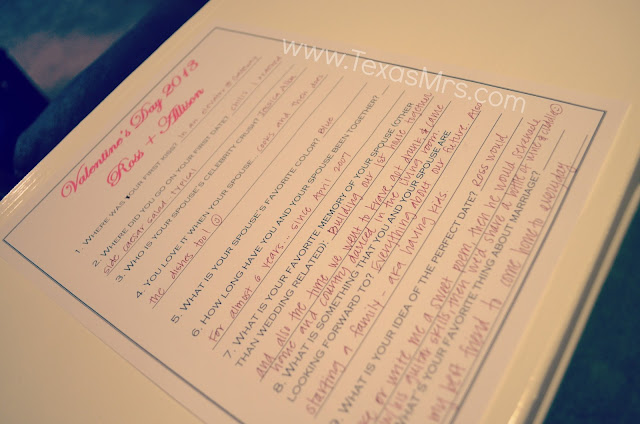 www.TexasMrs.com
Valentine's Day 2013
Ross + Allison
1. WHERE WAS YOUR FIRST KISS?
2. WHERE DID YOU GO ON YOUR FIRST DATE? Chili's, I ordered a
side caesar salad typical
3. WHO IS YOUR SPOUSE'S CELEBRITY CRUSH? Jessica Alba
4. YOU LOVE IT WHEN YOUR SPOUSE cooks and then does
the dishes too! ☺
5. WHAT IS YOUR SPOUSE'S FAVORITE COLOR? Blue
6. HOW LONG HAVE YOU AND YOUR SPOUSE BEEN TOGETHER?
For almost 6 years.. since April 2007
7. WHAT IS YOUR FAVORITE MEMORY OF YOUR SPOUSE (OTHER
THAN WEDDING RELATED): Building our 1st house together
and also the time we went to Steve Ray's, drank, & came
home and country danced in the living room.
8. WHAT IS SOMETHING THAT YOU AND YOUR SPOUSE ARE
LOOKING FORWARD TO? Everything about our future. Also
starting a family - aka having kids
9. WHAT IS YOUR IDEA OF THE PERFECT DATE? Ross would
or write me a sweet poem then he would serenade
his guitar skills then we'd share a bottle of wine & candle ☺
WHAT'S YOUR FAVORITE THING ABOUT MARRIAGE?
my best friend to come home to everyday